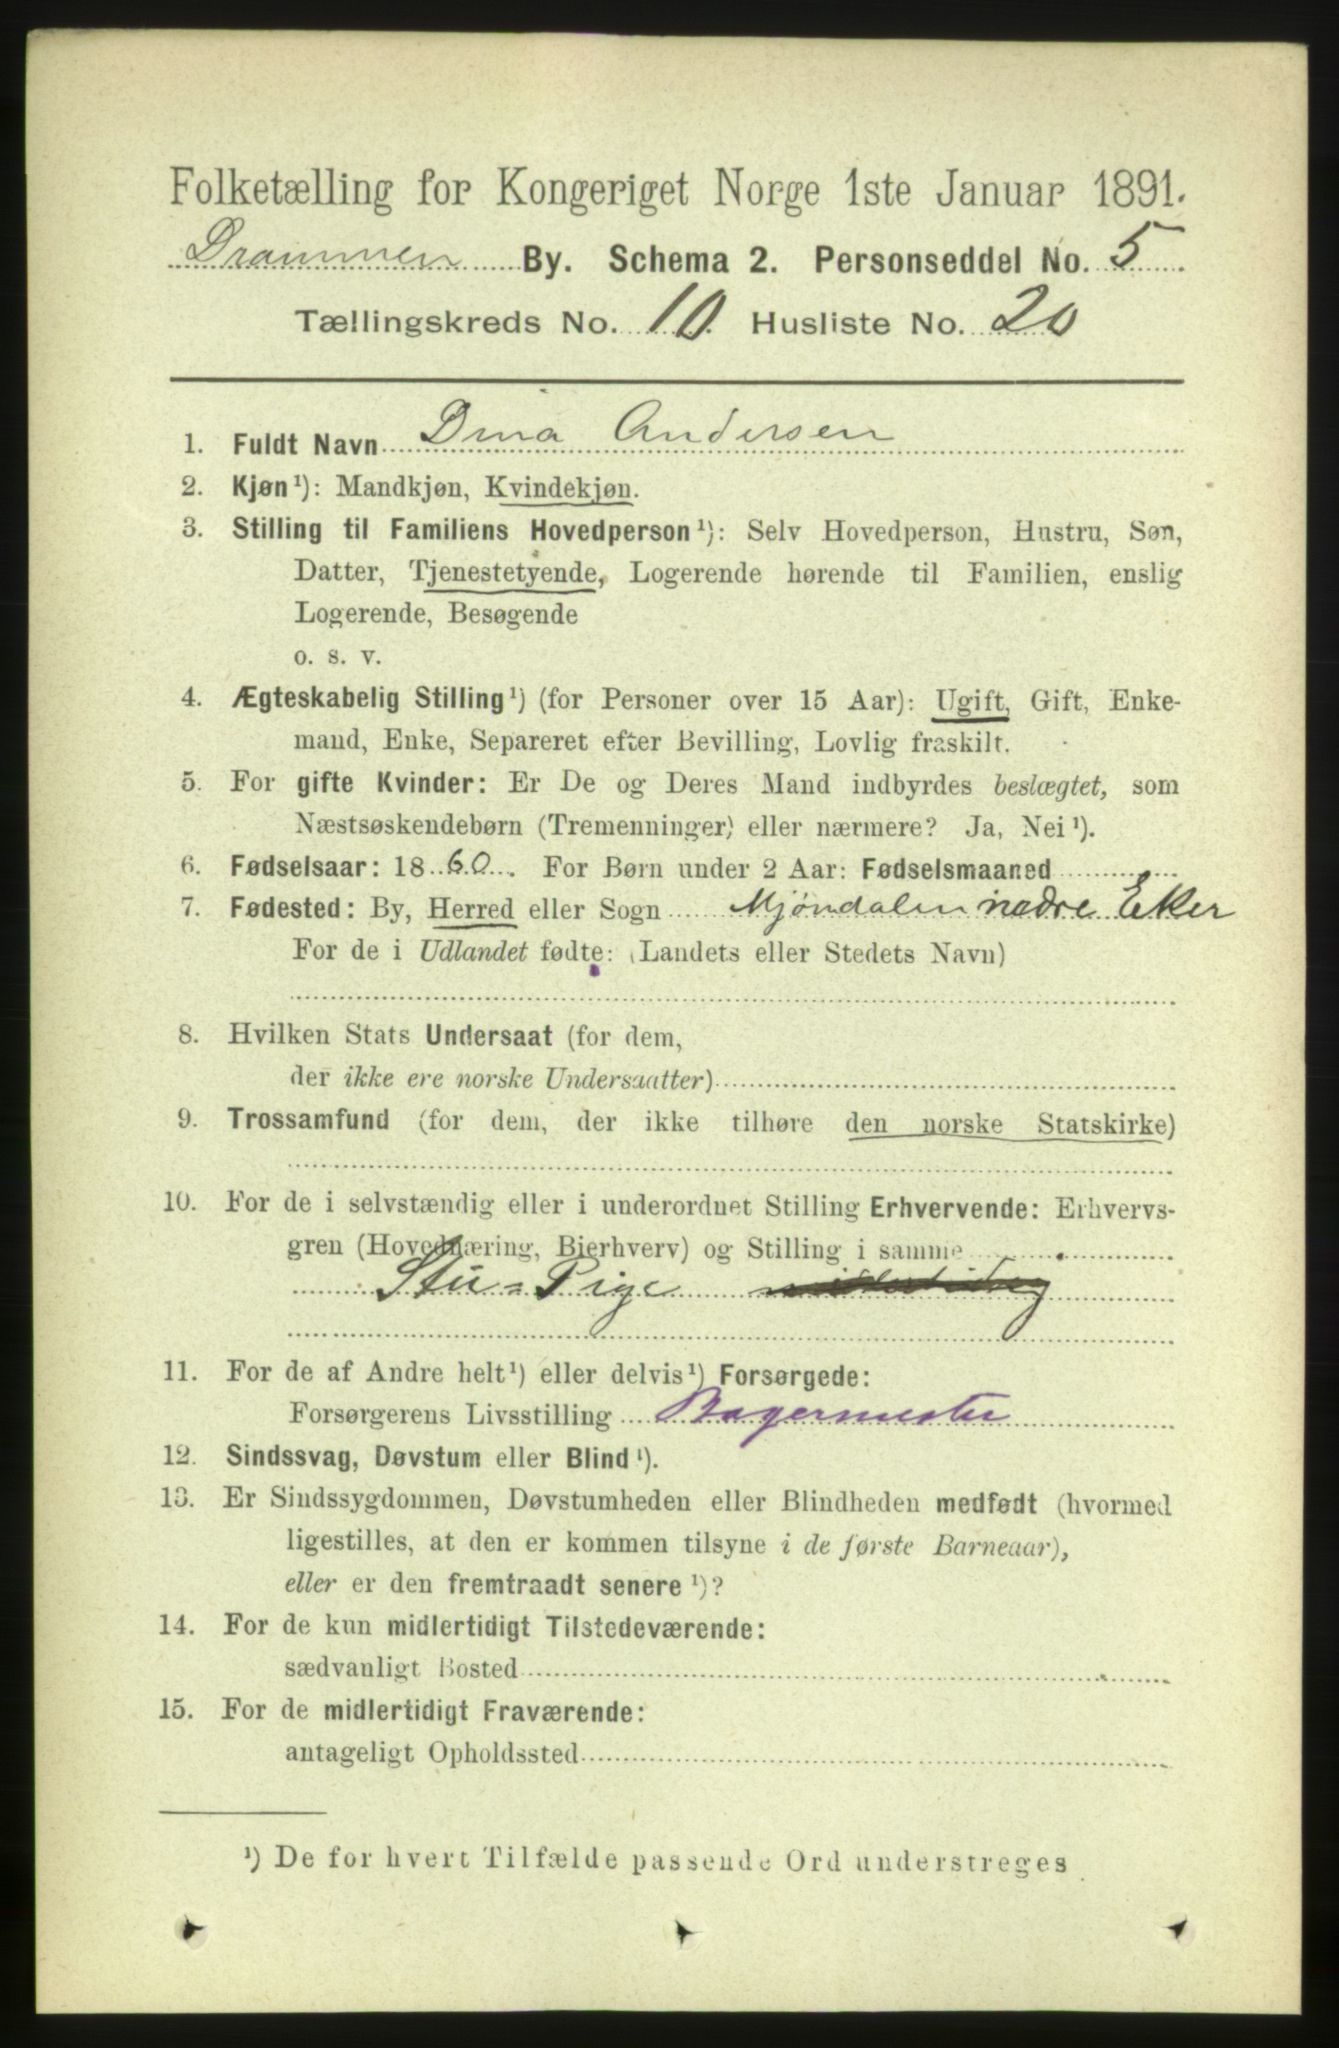 Folketælling for Kongeriget Norge 1ste Januar 1891.
Drammen By. Schema 2. Personseddel No. 5
Tællingskreds No. 10. Husliste No. 20
1. Fuldt Navn Dina Andersen
2. Kjøn¹): Mandkjøn, Kvindekjøn.
3. Stilling til Familiens Hovedperson¹): Selv Hovedperson, Hustru, Søn,
Datter, Tjenestetyende, Logerende hørende til Familien, enslig
Logerende, Besøgende
o. s. v.
4. Ægteskabelig Stilling¹) (for Personer over 15 Aar): Ugift, Gift, Enke-
mand, Enke, Separeret efter Bevilling, Lovlig fraskilt.
5. For gifte Kvinder: Er De og Deres Mand indbyrdes beslægtet, som
Næstsøskendebørn (Tremenninger) eller nærmere? Ja, Nei¹).
6. Fødselsaar: 1860. For Børn under 2 Aar: Fødselsmaaned
7. Fødested: By, Herred eller Sogn Mjöndalen nedre Eker
For de i Udlandet fødte: (Landets eller Stedets Navn)
8. Hvilken Stats Undersaat (for dem,
der ikke ere norske Undersaatter)
9. Trossamfund (for dem, der ikke tilhøre den norske Statskirke)
10. For de i selvstændig eller i underordnet Stilling Erhvervende: Erhvervs-
gren (Hovednæring, Bierhverv) og Stilling i samme
Stu-Pige
11. For de af Andre helt¹) eller delvis¹) Forsørgede:
Forsørgerens Livsstilling Bagermester
12. Sindssvag, Døvstum eller Blind¹).
13. Er Sindssygdommen, Døvstumheden eller Blindheden medfødt (hvormed
ligestilles, at den er kommen tilsyne i de første Barneaar),
eller er den fremtraadt senere¹)?
14. For de kun midlertidigt Tilstedeværende:
sædvanligt Bosted
15. For de midlertidigt Fraværende:
antageligt Opholdssted
¹) De for hvert Tilfælde passende Ord understreges